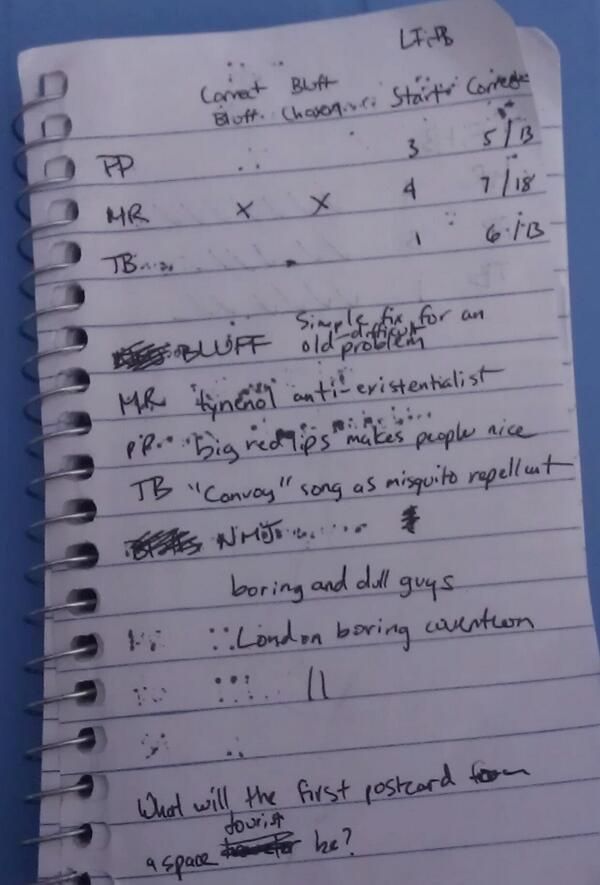 LITB
Correct Bluff Start Correct
Bluff Chosen
PP 3 5/13
MR X X 4 7/18
TB 1 6/13
BLUFF Simple fix for an
old difficult
problem
MR tynenol anti-existentialist
PP big red lips makes people nice
TB "Convoy" song as misquito repellent
NMJ
boring and dull guys
London boring
||
What will the first postcard from
a space tourist be?